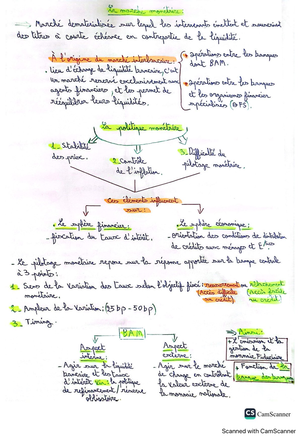 Le marché monétaire
→ Marché dématérialisé sur lequel les intervenants émettent et reçoivent
des titres à courte échéance en contrepartie de la liquidité.
À l'origine du marché interbancaire :
- lieu d'échange de liquidité bancaire, c'est
un marché réservé exclusivement aux
agents financiers, et les permet de
rééquilibrer leurs liquidités.
opérations entre les banques
dont BAM.
opérations entre les banques
et les organismes financiers
spécialisés (OFS).
La politique monétaire
1. Stabilité
des prix.
2. Contrôle
de l'inflation.
3. Difficulté du
pilotage monétaire.
Ces éléments influencent
sur :
. La sphère financière :
- fixation du taux d'intérêt.
. La sphère économique :
- orientation des conditions de
de crédits aux ménages et
- Le pilotage monétaire repose sur la réponse apportée sur la banque centrale
à 3 points :
1. Sens de la Variation des Taux selon l'objectif fixé :
monétaire.
(accès difficile
au crédit)
(accès facile
au crédit)
2. Ampleur de la Variation : (25 bp - 50 bp)
3. Timing.
BAM
Aspect
interne :
- Agir sur la liquidité
bancaire et les taux
d'intérêt via : la politique
de refinancement / réserve
obligatoire
Aspect
externe :
- Agir sur le marché
de change en contrôlant
la valeur externe de
la monnaie nationale.
⇒ Ainsi :
L'émission et la
gestion de la
monnaie Fiduciaire
+ Fonction de la
banque des banques
CS CamScanner
Scanned with CamScanner